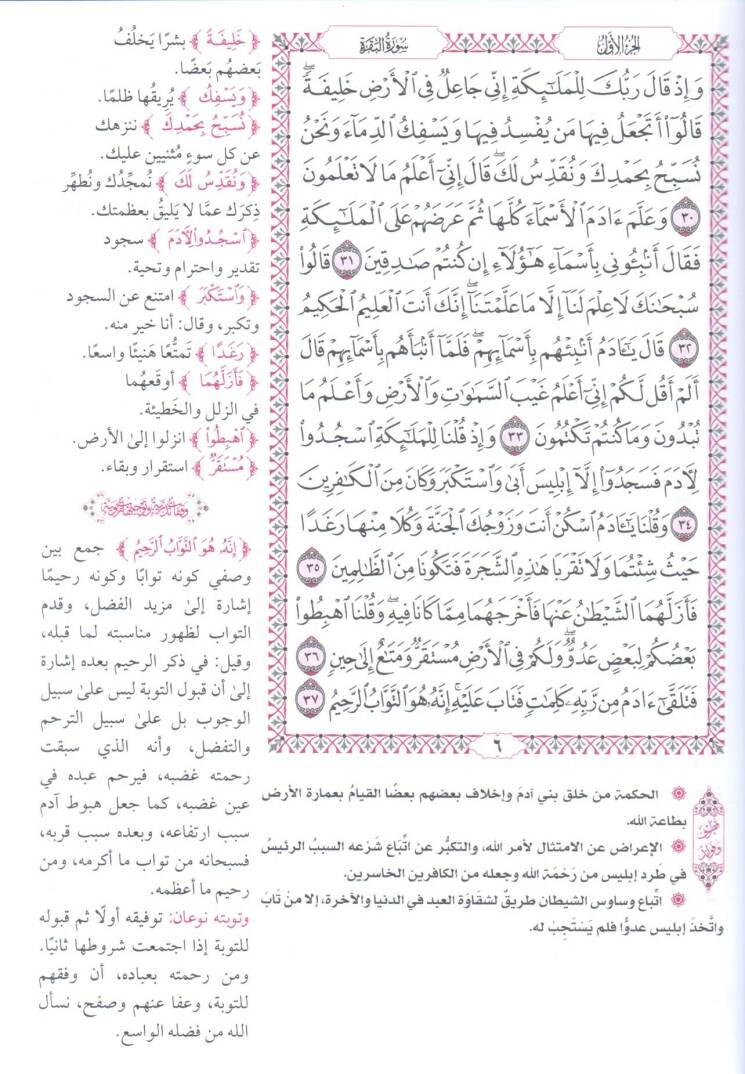 الجزء الأول
سورة البقرة
وَإِذْ قَالَ رَبُّكَ لِلْمَلَٰٓئِكَةِ إِنِّي جَاعِلٌ فِي ٱلْأَرْضِ خَلِيفَةًۖ
قَالُوٓا۟ أَتَجْعَلُ فِيهَا مَن يُفْسِدُ فِيهَا وَيَسْفِكُ ٱلدِّمَآءَ وَنَحْنُ
نُسَبِّحُ بِحَمْدِكَ وَنُقَدِّسُ لَكَۖ قَالَ إِنِّيٓ أَعْلَمُ مَا لَا تَعْلَمُونَ
٣٠ وَعَلَّمَ ءَادَمَ ٱلْأَسْمَآءَ كُلَّهَا ثُمَّ عَرَضَهُمْ عَلَى ٱلْمَلَٰٓئِكَةِ
فَقَالَ أَنۢبِـُٔونِي بِأَسْمَآءِ هَٰٓؤُلَآءِ إِن كُنتُمْ صَٰدِقِينَ ٣١ قَالُوا۟
سُبْحَٰنَكَ لَا عِلْمَ لَنَآ إِلَّا مَا عَلَّمْتَنَآۖ إِنَّكَ أَنتَ ٱلْعَلِيمُ ٱلْحَكِيمُ
٣٢ قَالَ يَٰٓـَٔادَمُ أَنۢبِئْهُم بِأَسْمَآئِهِمْۖ فَلَمَّآ أَنۢبَأَهُم بِأَسْمَآئِهِمْ قَالَ
أَلَمْ أَقُل لَّكُمْ إِنِّيٓ أَعْلَمُ غَيْبَ ٱلسَّمَٰوَٰتِ وَٱلْأَرْضِ وَأَعْلَمُ مَا
تُبْدُونَ وَمَا كُنتُمْ تَكْتُمُونَ ٣٣ وَإِذْ قُلْنَا لِلْمَلَٰٓئِكَةِ ٱسْجُدُوا۟
لِـَٔادَمَ فَسَجَدُوٓا۟ إِلَّآ إِبْلِيسَ أَبَىٰ وَٱسْتَكْبَرَ وَكَانَ مِنَ ٱلْكَٰفِرِينَ
٣٤ وَقُلْنَا يَٰٓـَٔادَمُ ٱسْكُنْ أَنتَ وَزَوْجُكَ ٱلْجَنَّةَ وَكُلَا مِنْهَا رَغَدًا
حَيْثُ شِئْتُمَا وَلَا تَقْرَبَا هَٰذِهِ ٱلشَّجَرَةَ فَتَكُونَا مِنَ ٱلظَّٰلِمِينَ ٣٥
فَأَزَلَّهُمَا ٱلشَّيْطَٰنُ عَنْهَا فَأَخْرَجَهُمَا مِمَّا كَانَا فِيهِۖ وَقُلْنَا ٱهْبِطُوا۟
بَعْضُكُمْ لِبَعْضٍ عَدُوٌّۖ وَلَكُمْ فِي ٱلْأَرْضِ مُسْتَقَرٌّ وَمَتَٰعٌ إِلَىٰ حِينٍ ٣٦
فَتَلَقَّىٰٓ ءَادَمُ مِن رَّبِّهِۦ كَلِمَٰتٍ فَتَابَ عَلَيْهِۚ إِنَّهُۥ هُوَ ٱلتَّوَّابُ ٱلرَّحِيمُ ٣٧
٦
الحكمة من خلق بني آدمَ وإخلاف بعضهم بعضًا القيامُ بعمارة الأرض
بطاعة الله.
الإعراض عن الامتثال لأمر الله، والتكبُّر عن اتِّباع شَرْعه السببُ الرئيسُ
في طَرد إبليس من رَحْمَة الله وجعله من الكافرين الخاسرين.
اتِّباع وساوس الشيطان طريقٌ لشقاوَة العبد في الدنيا والآخرة، إلا منْ تَابَ
واتَّخذَ إبليس عدوًّا فلم يَسْتَجِبْ له.
﴿ خَلِيفَةً ﴾ بشرًا يَخلُفُ
بَعضهُم بَعضًا.
﴿ وَيَسْفِكُ ﴾ يُريقُها ظلمًا.
﴿ نُسَبِّحُ بِحَمْدِكَ ﴾ ننزهك
عن كل سوءٍ مُثنيين عليك.
﴿ وَنُقَدِّسُ لَكَ ﴾ نُمجِّدُك ونُطهِّر
ذِكرَك عمَّا لا يَليقُ بعظمتك.
﴿ ٱسْجُدُوا۟ لِـَٔادَمَ ﴾ سجود
تقدير واحترام وتحية.
﴿ وَٱسْتَكْبَرَ ﴾ امتنع عن السجود
وتكبر، وقال: أنا خير منه.
﴿ رَغَدًا ﴾ تَمتُّعًا هَنيئًا واسعًا.
﴿ فَأَزَلَّهُمَا ﴾ أوقعَهُما
في الزلل والخَطيئة.
﴿ ٱهْبِطُوا۟ ﴾ انزلوا إلىٰ الأرض.
﴿ مُسْتَقَرٌّ ﴾ استقرار وبقاء.
﴿ إِنَّهُۥ هُوَ ٱلتَّوَّابُ ٱلرَّحِيمُ ﴾ جمع بين
وصفي كونه توابًا وكونه رحيمًا
إشارة إلىٰ مزيد الفضل، وقدم
التواب لظهور مناسبته لما قبله،
وقيل: في ذكر الرحيم بعده إشارة
إلىٰ أن قبول التوبة ليس علىٰ سبيل
الوجوب بل علىٰ سبيل الترحم
والتفضل، وأنه الذي سبقت
رحمته غضبه، فيرحم عبده في
عين غضبه، كما جعل هبوط آدم
سبب ارتفاعه، وبعده سبب قربه،
فسبحانه من تواب ما أكرمه، ومن
رحيم ما أعظمه.
وتوبته نوعان: توفيقه أولًا ثم قبوله
للتوبة إذا اجتمعت شروطها ثانيًا.
ومن رحمته بعباده، أن وفقهم
للتوبة، وعفا عنهم وصفح، نسأل
الله من فضله الواسع.